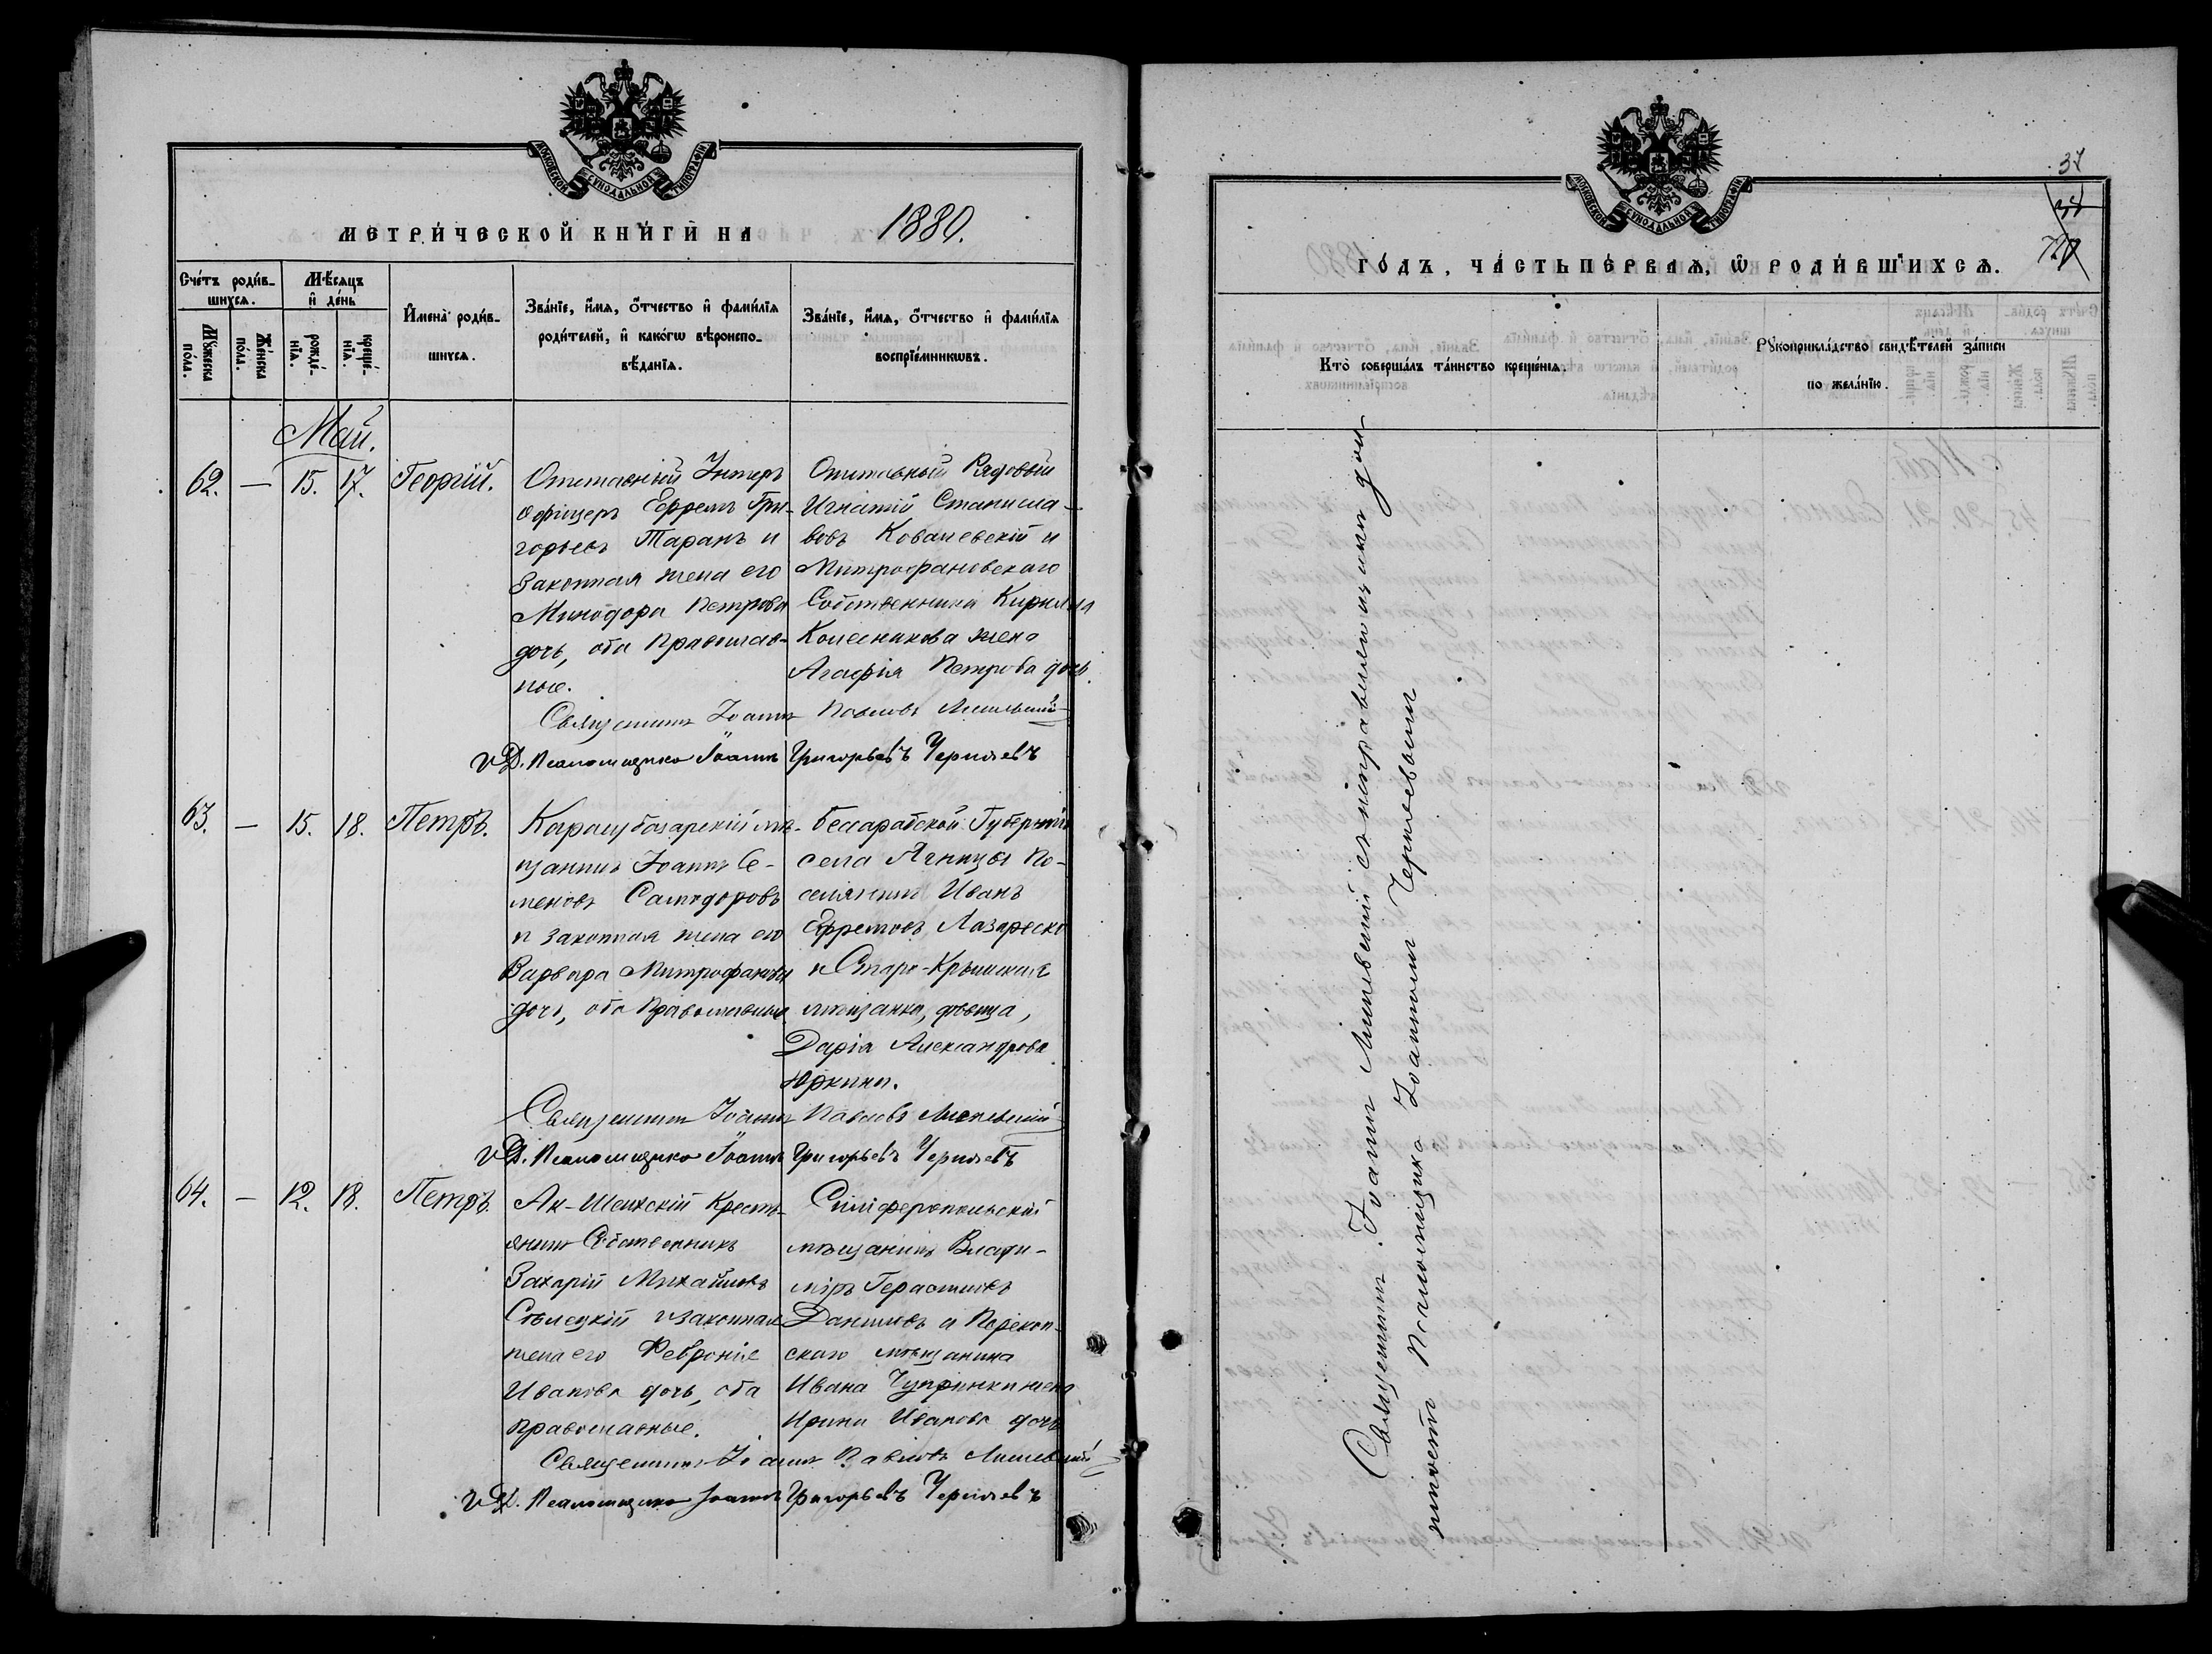 МОСКОВСКОЙ СѴНОДАЛЬНОЙ ТИПОГРАФІИ
МЕТРИ́ЧЕСКОЙ КНИ́ГИ НА 1880.
Сче́тъ роди́в-
шихся.
Мѣ́сяцъ
и҆ де́нь
И҆мена̀ роди́в-
шихся.
Зва́нїе, и҆́мя, о҆́тчество и҆ фами́лїя
роди́телей, и҆ како́гѡ вѣроиспо-
вѣ́данїя.
Зва́нїе, и҆́мя, о҆́тчество и҆ фами́лїя
воспрїе́мникѡвъ.
Мꙋ́жеска
по́ла.
Же́нска
по́ла.
рожде́-
нїя.
креще́-
нїя.
Май.
62. — 15. 17. Георгій.
Отставный Унтеръ
офицеръ Ефремъ Гри-
горьевъ Таранъ и
законная жена его
Минодора Петрова
дочь, оба Православ-
ные.
Отставный Рядовый
Игнатій Станисла-
вовъ Ковалевскій и
Митрофановскаго
Собственника Кирилла
Колесникова жена
Агафія Петрова дочь.
Священникъ Іоаннъ Павловъ
И.Д. Псаломщика Іоаннъ Григорьевъ Черняевъ
63. — 15. 18. Петръ.
Карасубазарскій мѣ-
щанинъ Іоаннъ Се-
меновъ Самодоровъ
и законная жена его
Варвара Митрофанова
дочь, оба Православные
Бессарабской Губерніи
села По-
селянинъ Иванъ
Ефремовъ Лазареско
и Старо-Крымская
мѣщанка, дѣвица,
Дарія Александрова
Юркина.
Священникъ Іоаннъ Павловъ
И.Д. Псаломщика Іоаннъ Григорьевъ Черняевъ
64. — 12. 18. Петръ.
Ак-Шеихскій Кресть-
янинъ Собственникъ
Захарій Михайловъ
Сѣлецкій и законная
жена его Февронія
Иванова дочь, оба
православные.
Симферопольскій
мѣщанинъ Влади-
міръ Герасимовъ
Даниловъ и Перекоп-
скаго мѣщанина
Ивана Чупринки жена
Ирина Иванова дочь
Священникъ Іоаннъ Павловъ
И.Д. Псаломщика Іоаннъ Григорьевъ Черняевъ
37
МОСКОВСКОЙ СѴНОДАЛЬНОЙ ТИПОГРАФІИ
ГО́ДЪ, ЧА́СТЬ ПЕ́РВАЯ, Ѡ҆ РОДИ́ВШИХСЯ.
Кто̀ соверша́лъ та́инство креще́нїя.
Рꙋкоприкла́дство свидѣ́телей за́писи
по жела́нїю.
Священникъ Іоаннъ съ исправляющимъ дол-
жность Псаломщика Іоанномъ Черняевымъ